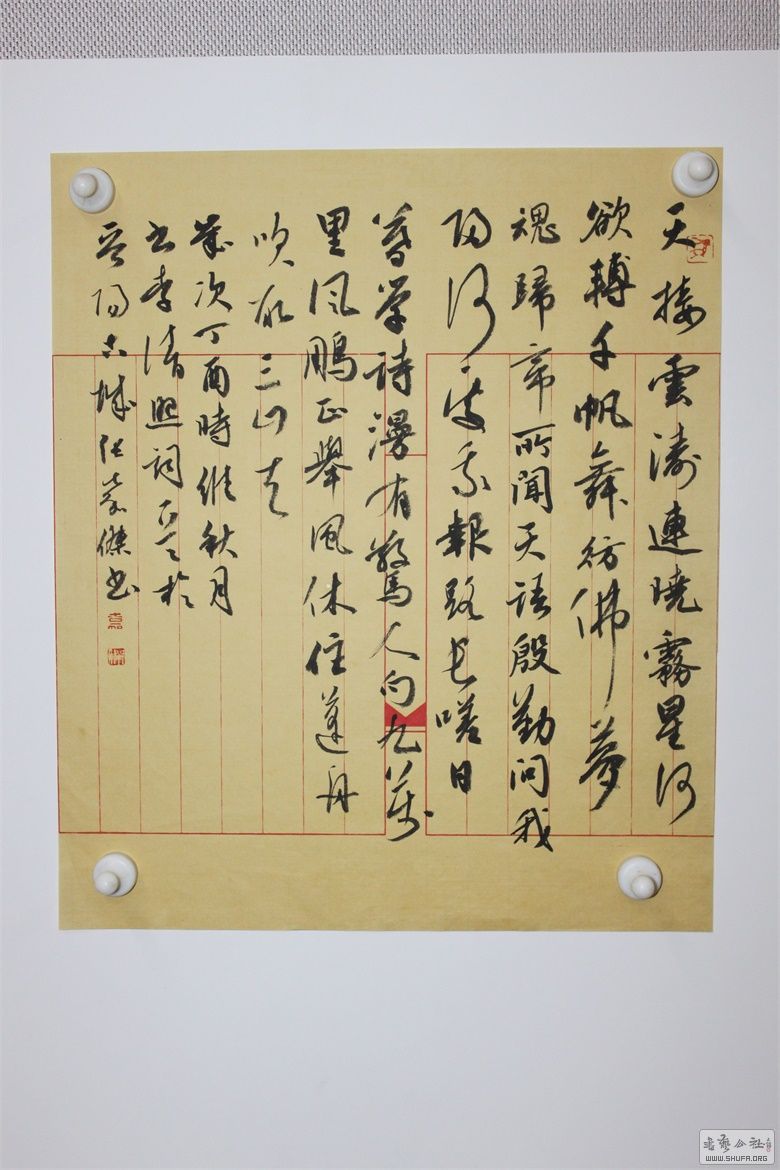 天接雲濤連曉霧星河
欲轉千帆舞彷佛夢
魂歸帝所聞天語殷勤問我
歸何處我報路長嗟日
暮學詩漫有驚人句九萬
里風鵬正舉風休住蓬舟
吹取三山去
歲次丁酉時維秋月
書李清照詞於
晉陽古城張傑書
書藝公社
WWW.SHUFA.ORG